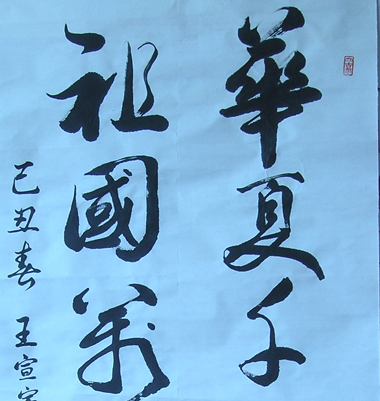 華夏千
祖國萬
己丑春 王宣